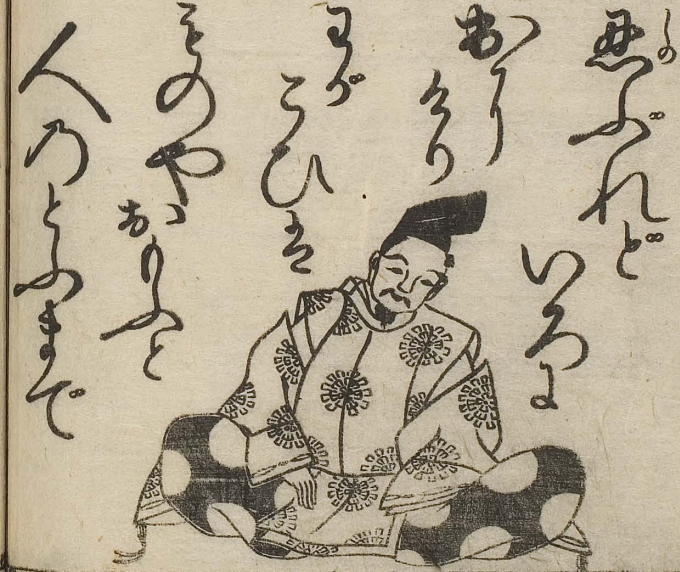 忍ぶれど
しの
いろに
出に
けり
わが
こひは
ものや
おもふと
人乃とふまで